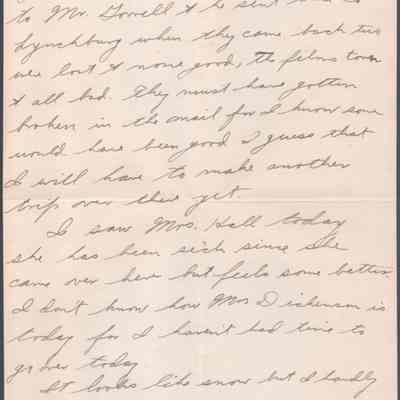 to Mr. Gorrell & he sent
Lynchburg when they came back two
were lost & none good, the films torn
& all bad. They must have gotten
broken in the mail for I know some
would have been good I guess that
I will have to make another
trip over there yet.
I saw Mrs. Hall today
she has been sick since she
came over here but feels some better.
I don't know how Mrs Dickenson is
today for I haven't had time to
go over today
It looks like snow but I hardly